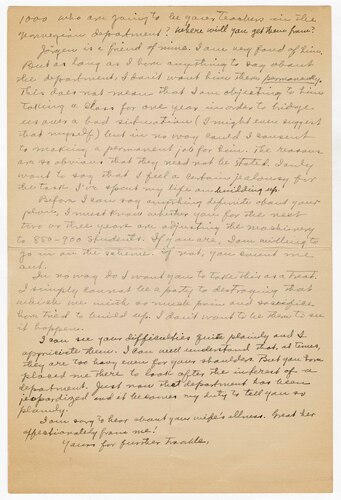 1000 who are going to be your teachers in the
Norwegian department? Where will you get them from?
Jörgen is a friend of mine. I am very fond of him.
But as long as I have anything to say about
the department, I don't want him there permanently.
This does not mean that I am objecting to him
taking a class for one year in order to bridge
over a bad situation (I might even suggest
that myself) but in no way could I consent
to making a permanent job for him. The reasons
are so obvious that they need not be stated. I only
want to say that I feel a certain jealousy for
the task I've spent my life on building up.
Before I can say anything definite about your
plans, I must know whether you for the next
two or three years are adjusting the machinery
to 850-900 students. If you are, I am willing to
go in on the scheme. If not, you count me
out.
In no way do I want you to take this as a treat.
I simply cannot be a party to destroying that
which we with so much pain and sacrifice
have tried to build up. I don't want to be there to see
it happen.
I can see your difficulties quite plainly and I
appreciate them. I can well understand that, at times,
they are too heavy even for your shoulders. But you have
placed me here to look after the interest of a
department. Just now that department has been
jeopardized and it becomes my duty to tell you so
plainly.
I am sorry to hear about your wife's illness. Greet her
affectionately from me!
Yours for further trouble,